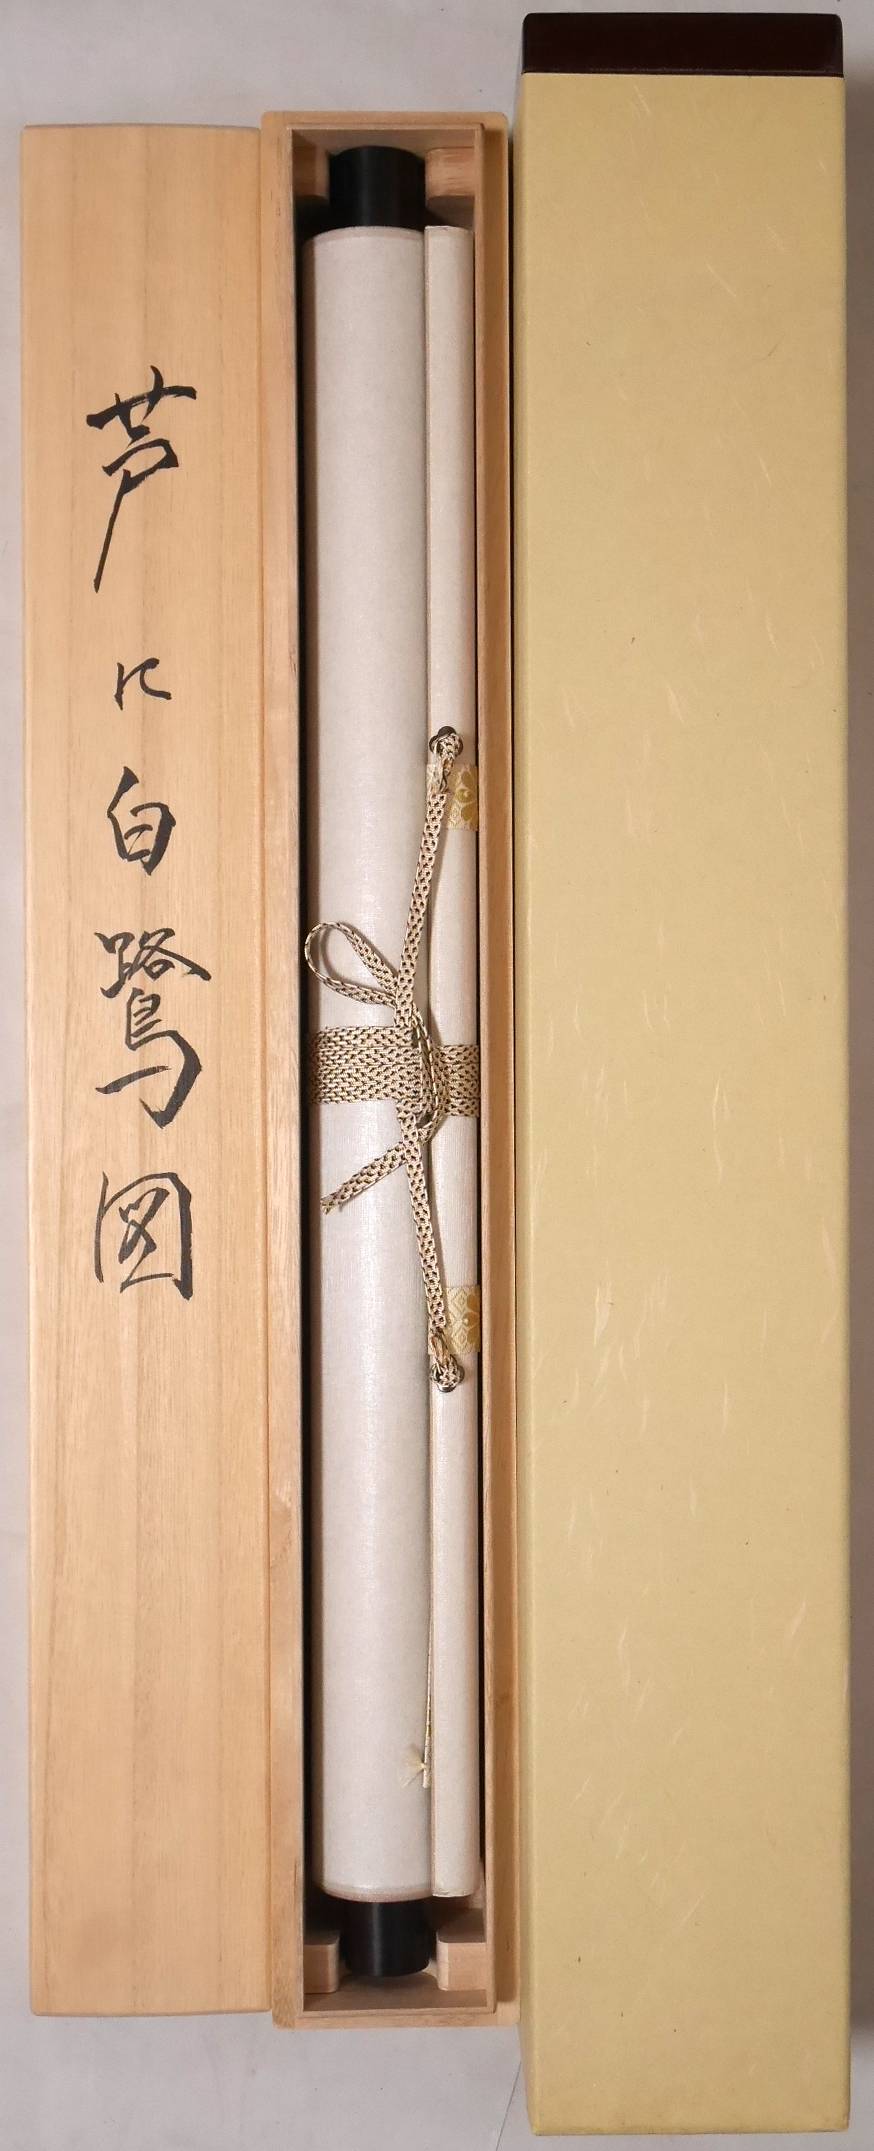 芦に白鷺図